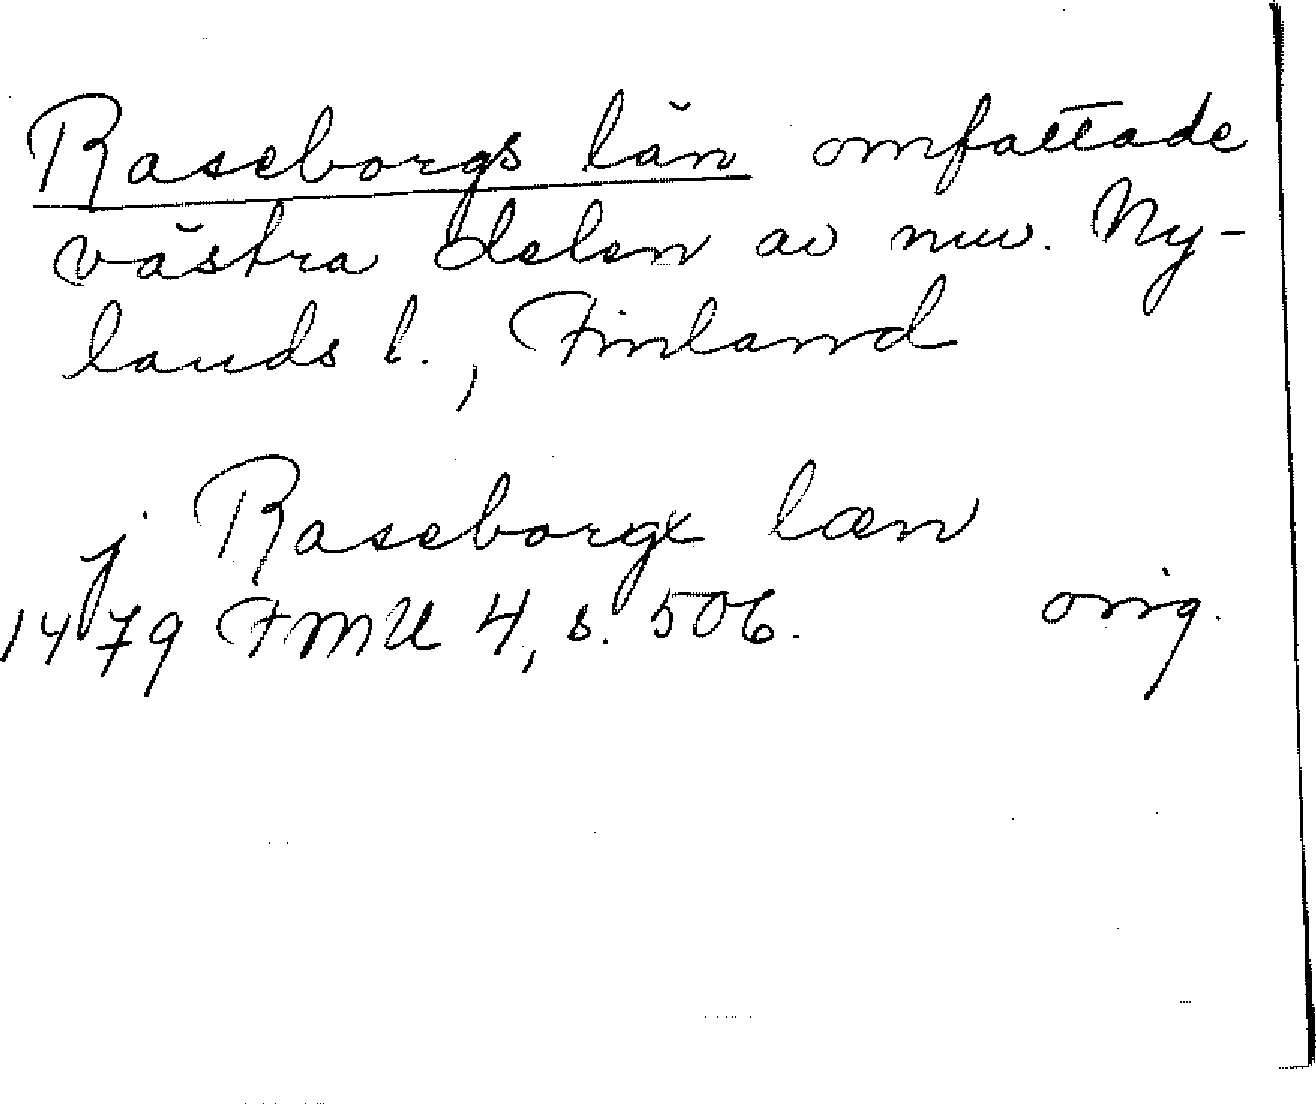 Raseborgs län omfattade
västra delen av nuv. Ny-
lands l., Finland
j Raseborgx læn
1479 FMU 4, s. 506. orig.